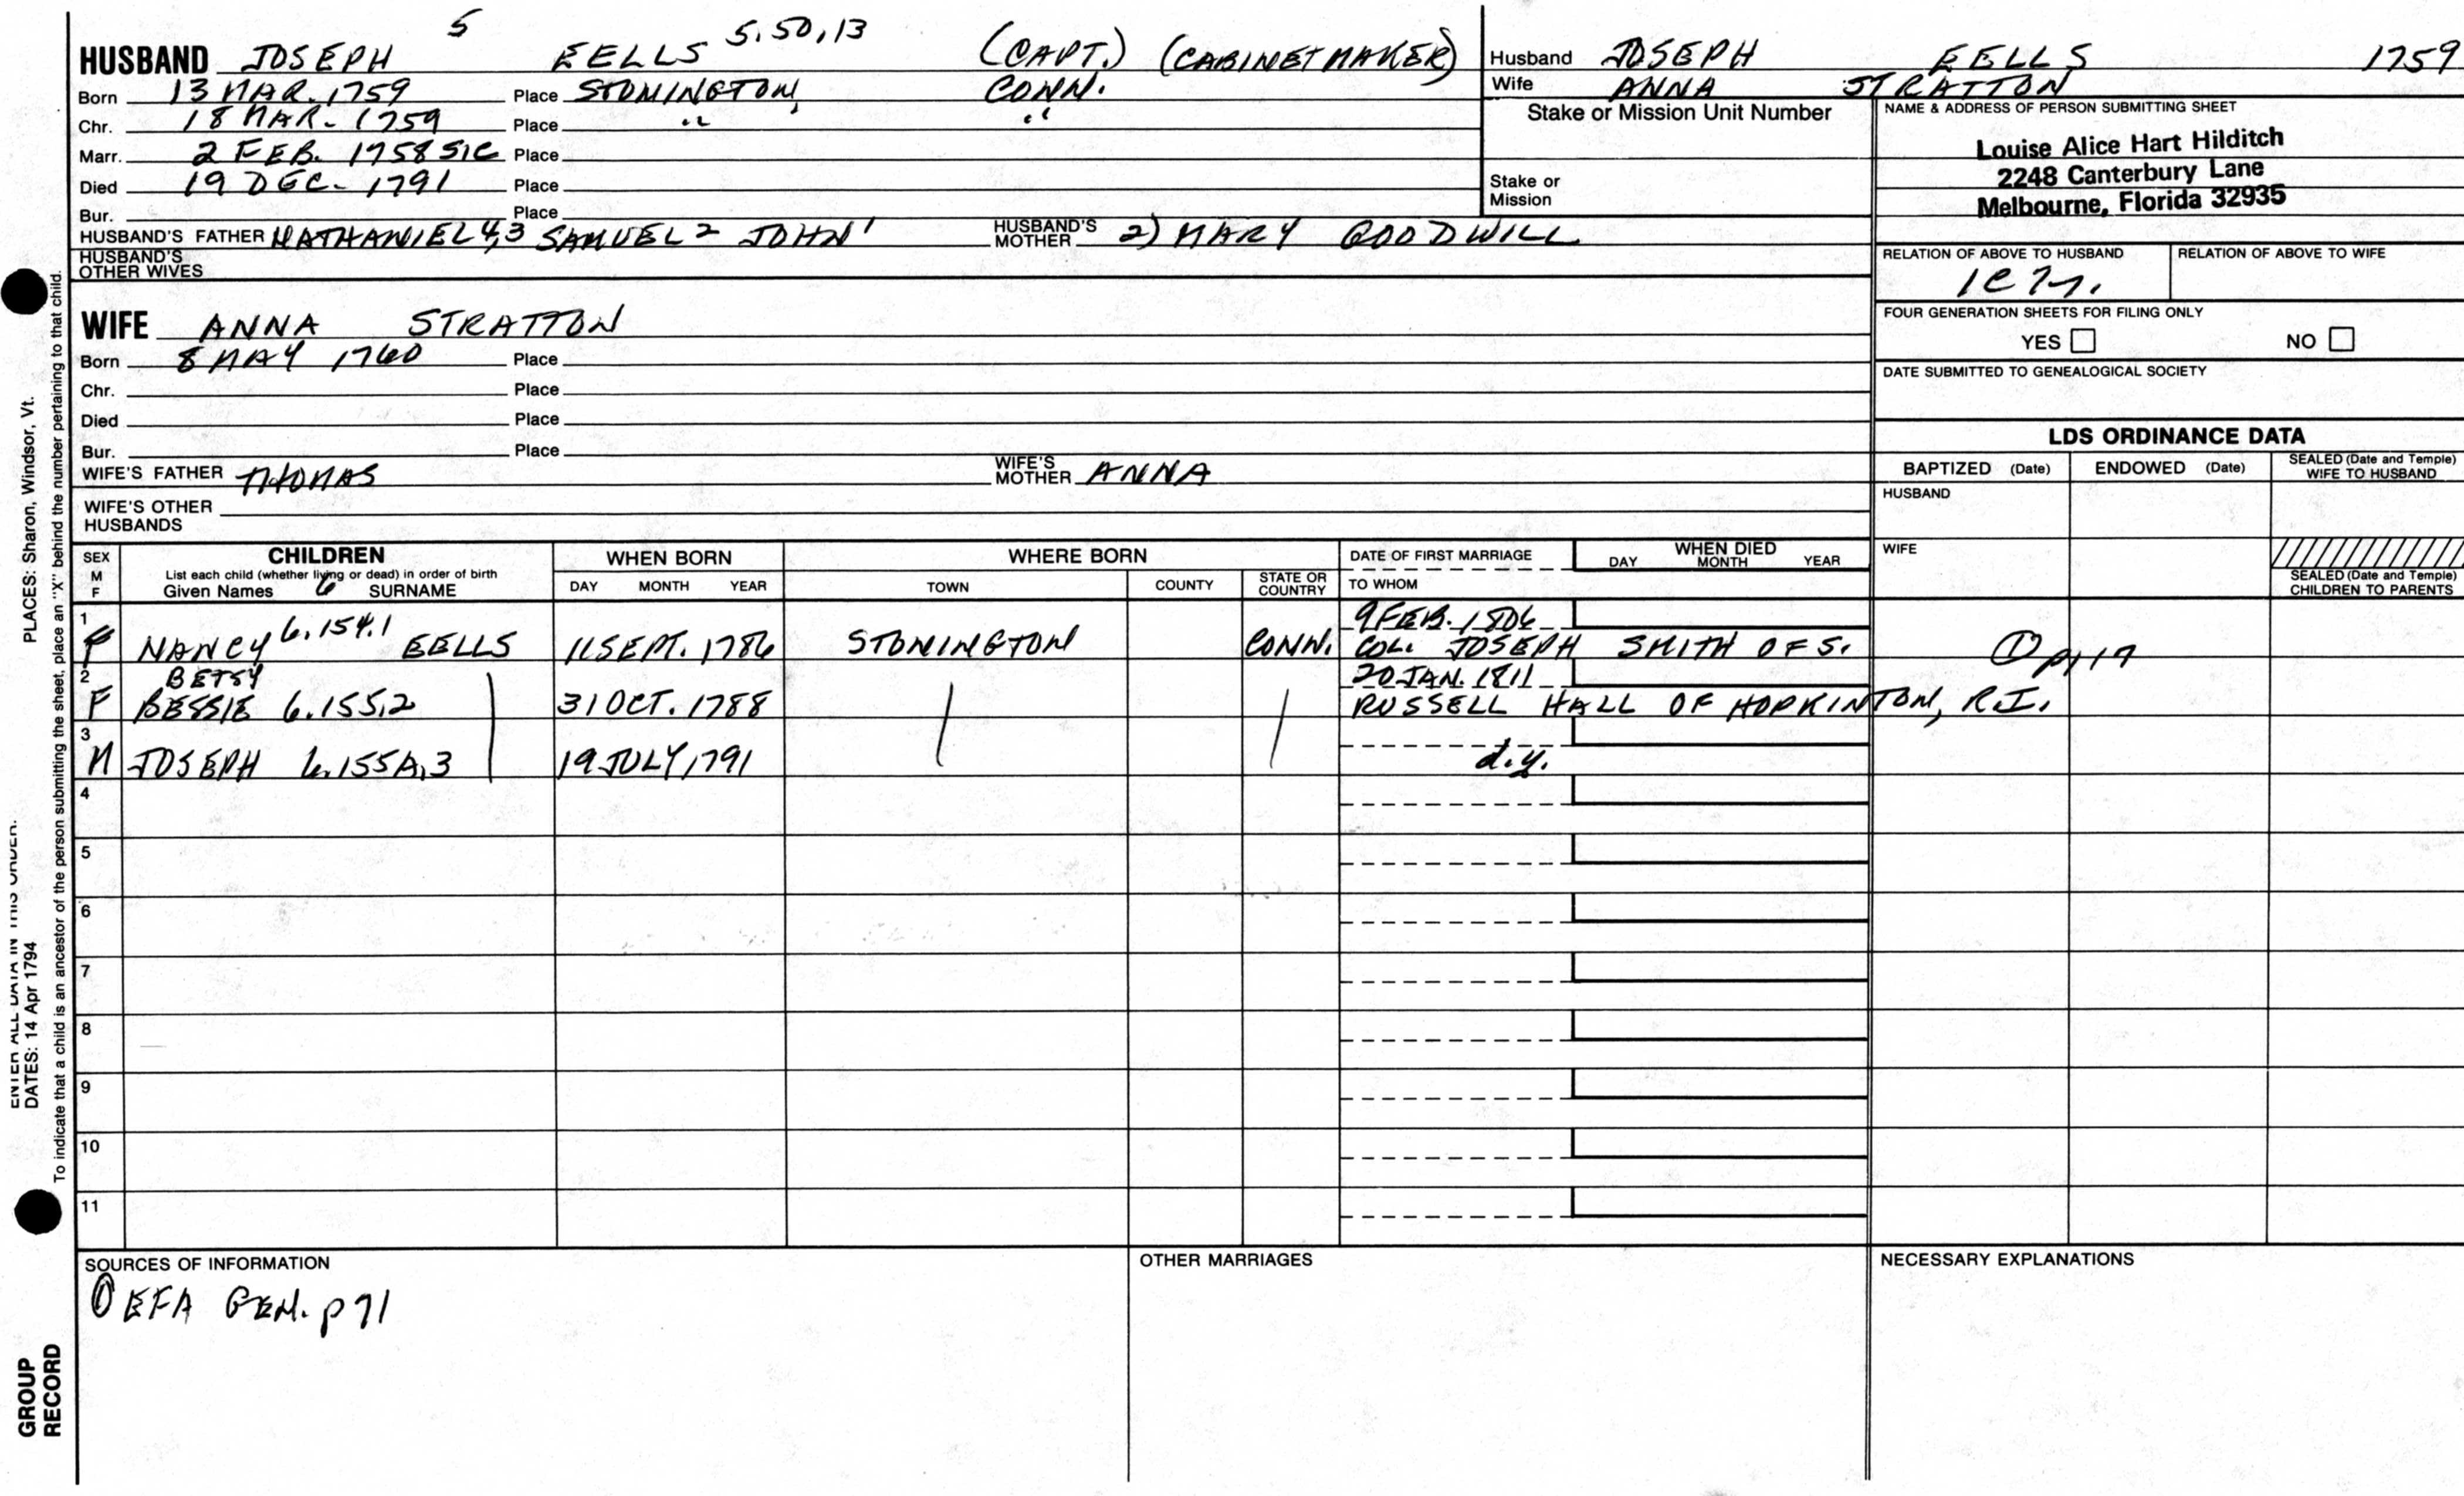 HUSBAND JOSEPH 5 EELLS 5.50,13 (CAPT.) (CABINETMAKER)
Born 13 MAR. 1759 Place STONINGTON, CONN.
Chr. 18 MAR. 1759 Place " "
Marr. 2 FEB. 1758 SIC Place
Died 19 DEC. 1791 Place
Bur. Place
HUSBAND'S FATHER NATHANIEL 4,3 SAMUEL 2 JOHN 1 HUSBAND'S MOTHER 2) MARY GOODWILL
HUSBAND'S OTHER WIVES
WIFE ANNA STRATTON
Born 8 MAY 1760 Place
Chr. Place
Died Place
Bur. Place
WIFE'S FATHER THOMAS WIFE'S MOTHER ANNA
WIFE'S OTHER HUSBANDS
Husband JOSEPH EELLS 1759
Wife ANNA STRATTON
Stake or Mission Unit Number
Stake or Mission
NAME & ADDRESS OF PERSON SUBMITTING SHEET
Louise Alice Hart Hilditch
2248 Canterbury Lane
Melbourne, Florida 32935
RELATION OF ABOVE TO HUSBAND RELATION OF ABOVE TO WIFE
FOUR GENERATION SHEETS FOR FILING ONLY
YES NO
DATE SUBMITTED TO GENEALOGICAL SOCIETY
LDS ORDINANCE DATA
BAPTIZED (Date) ENDOWED (Date) SEALED (Date and Temple) WIFE TO HUSBAND
HUSBAND
WIFE
SEALED (Date and Temple) CHILDREN TO PARENTS
SEX M F
CHILDREN
List each child (whether living or dead) in order of birth
Given Names 6 SURNAME
WHEN BORN
DAY MONTH YEAR
WHERE BORN
TOWN COUNTY STATE OR COUNTRY
DATE OF FIRST MARRIAGE
TO WHOM
WHEN DIED
DAY MONTH YEAR
1 9 FEB. 1806
F NANCY 6.154.1 EELLS 11 SEPT. 1786 STONINGTON CONN. COL. JOSEPH SMITH OF S. ① p117
2 BETSY 20 JAN. 1811
F BESSIE 6.155,2 31 OCT. 1788 RUSSELL HALL OF HOPKINTON, R.I.
3
M JOSEPH 6.155A,3 19 JULY 1791 d.y.
4
5
6
7
8
9
10
11
SOURCES OF INFORMATION
① EFA GEN. p 71
OTHER MARRIAGES
NECESSARY EXPLANATIONS
PLACES: Sharon, Windsor, Vt.
ENTER ALL DATA IN THIS ORDER.
DATES: 14 Apr 1794
To indicate that a child is an ancestor of the person submitting the sheet, place an "X" behind the number pertaining to that child.
GROUP RECORD